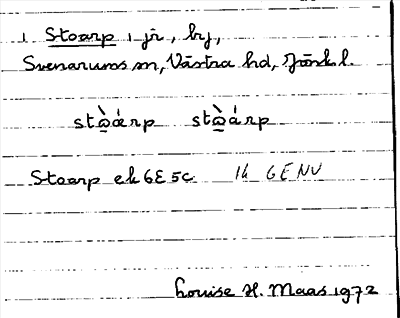 1 Stoarp, jr, brj,
Svenarums sn, Västra hd, Jönk l.
stò̱árp stò̱árp
Stoarp ek 6E 5c 1h GENV
Louise H. Maas 1972